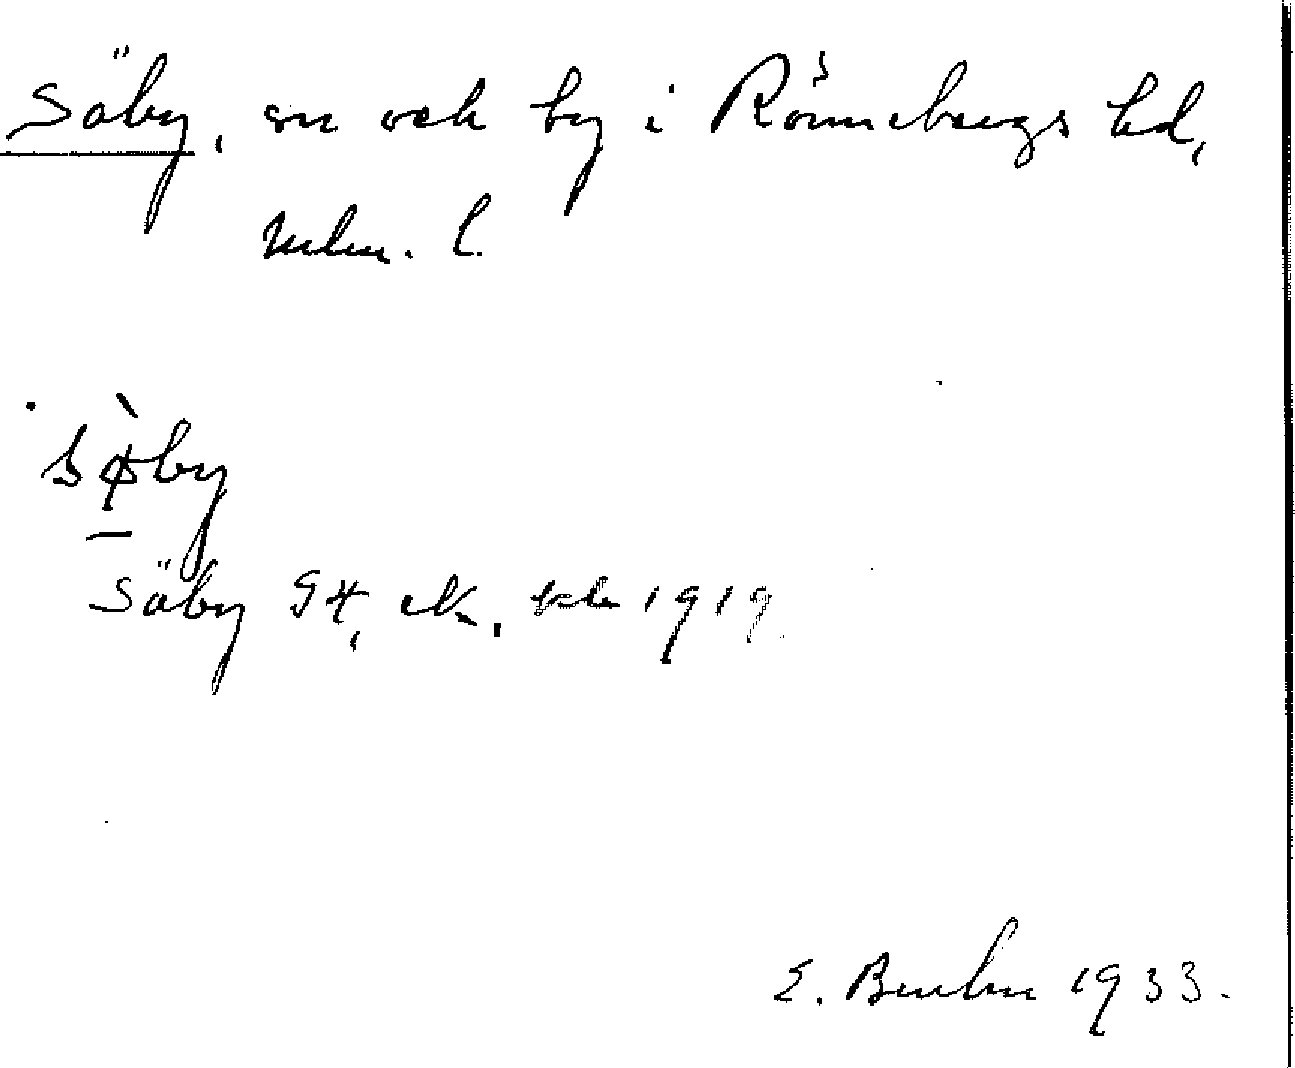 Säby, sn och by i Rönnebergs hd,
Mlm. l.
sø̀by
Säby GH, ek, 1919.
E. Bruhn 1933.